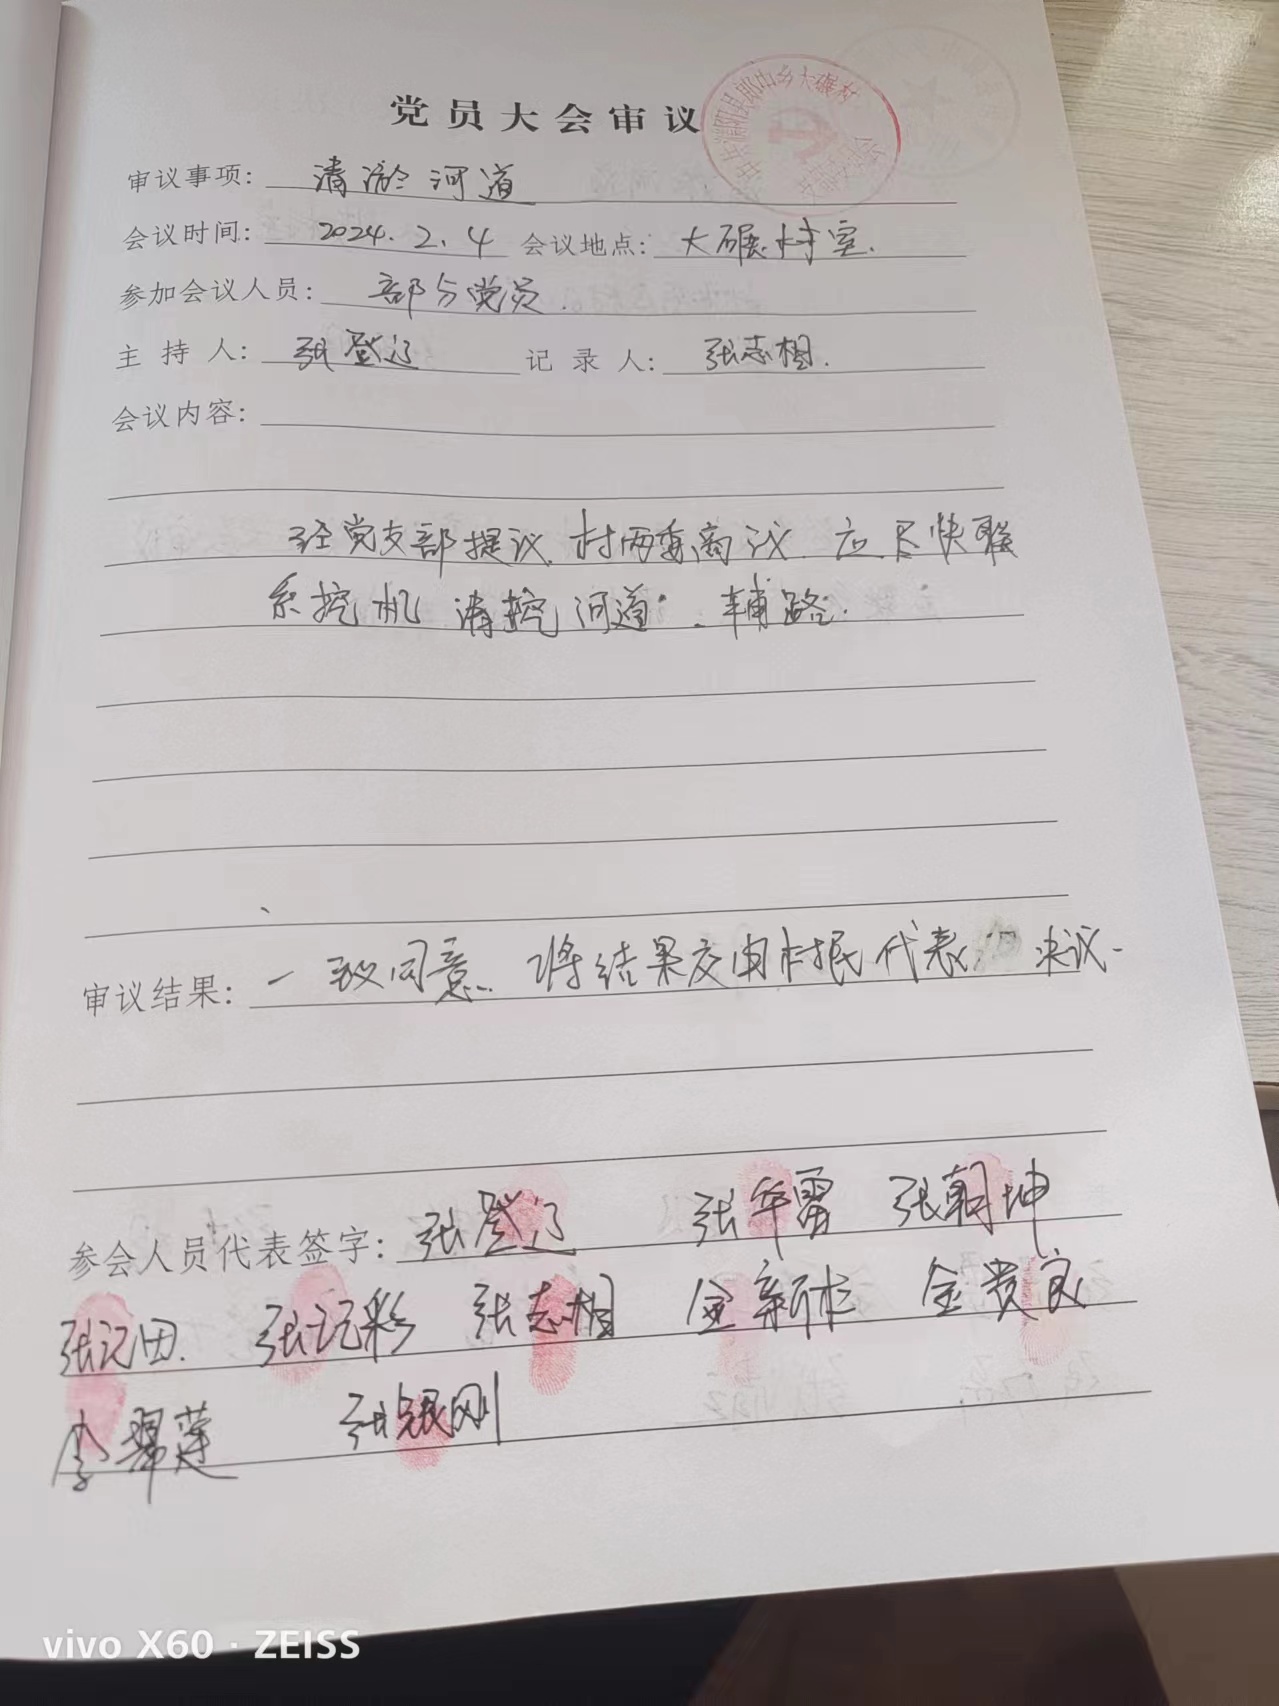 党员大会审议
审议事项: 清淤河道
会议时间: 2024.2.4 会议地点: 大碾村室.
参加会议人员: 部分党员.
主持人: 张登辽 记录人: 张志相.
会议内容:
经党支部提议、村两委商议 应尽快联
系挖机 清挖河道. 辅路.
审议结果: 一致同意. 将结果交由村民代表 决议.
参会人员代表签字: 张登辽 张华雷 张朝坤
张记田. 张记彩 张志相 金新 金贵良
李翠莲 张银刚
vivo X60 · ZEISS